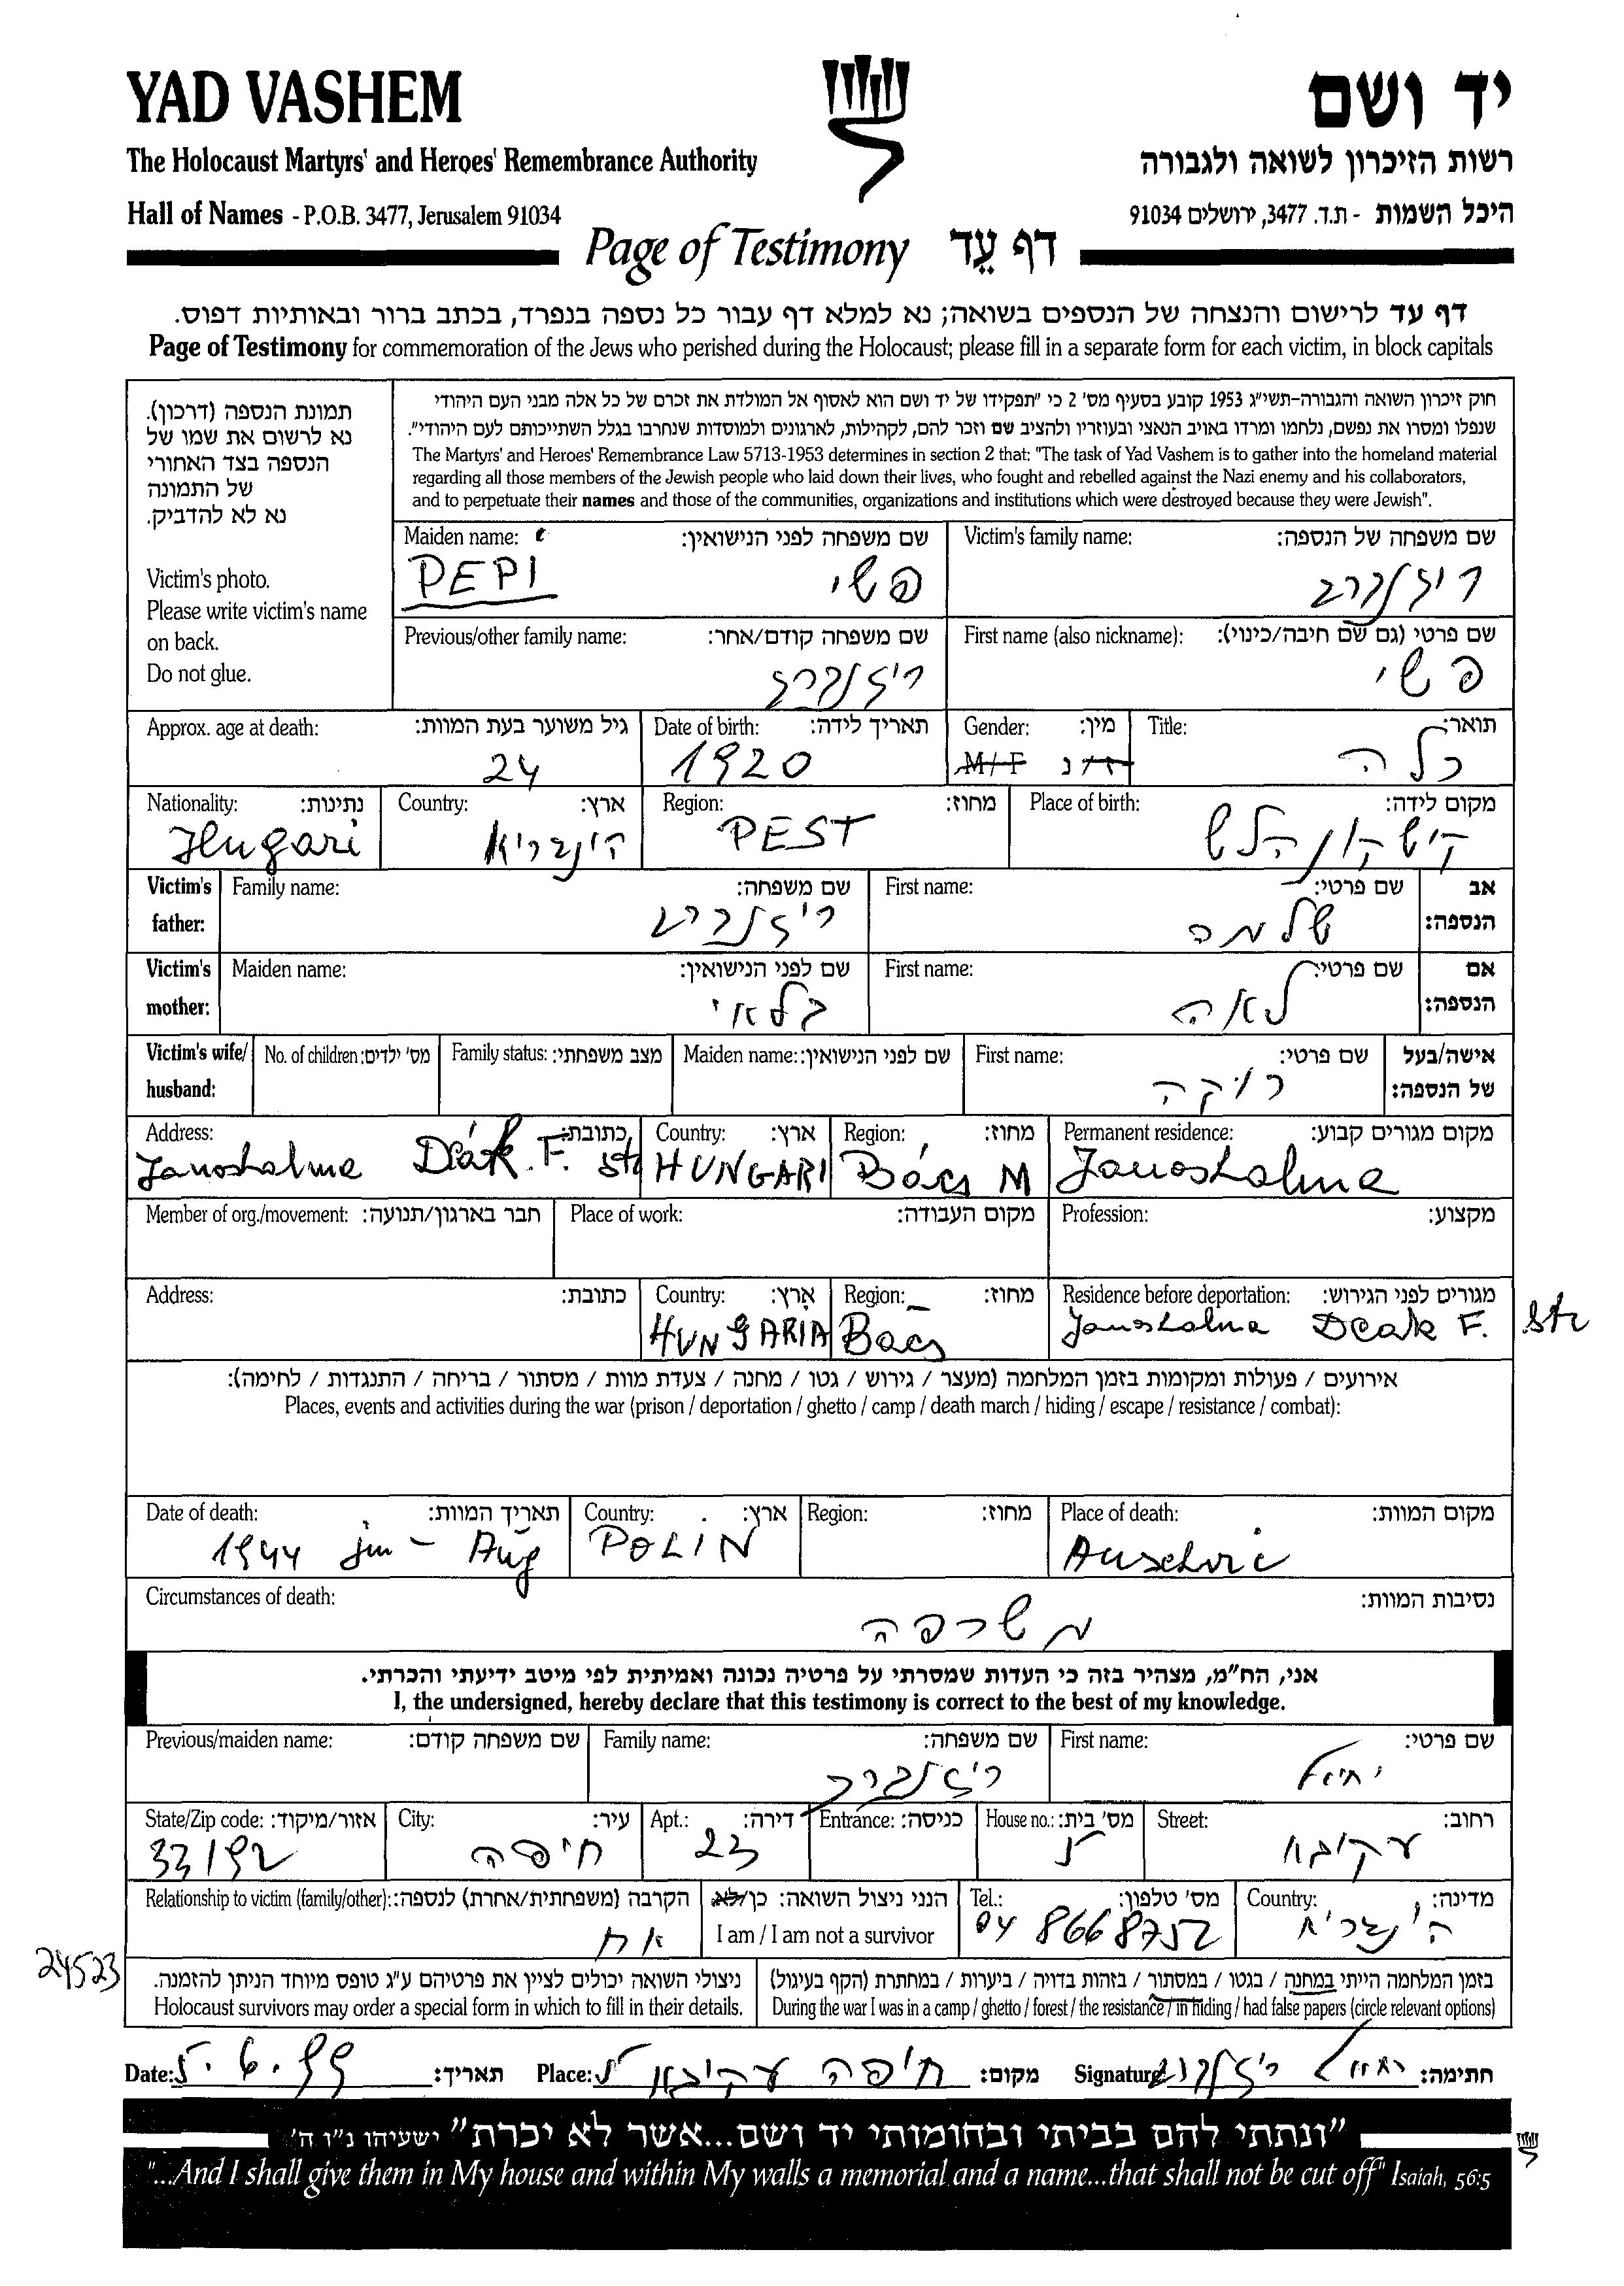 YAD VASHEM
יד ושם
The Holocaust Martyrs' and Heroes' Remembrance Authority
רשות הזיכרון לשואה ולגבורה
Hall of Names - P.O.B. 3477, Jerusalem 91034
היכל השמות - ת.ד. 3477, ירושלים 91034
Page of Testimony דף עֵד
דף עד לרישום והנצחה של הנספים בשואה; נא למלא דף עבור כל נספה בנפרד, בכתב ברור ובאותיות דפוס.
Page of Testimony for commemoration of the Jews who perished during the Holocaust; please fill in a separate form for each victim, in block capitals
תמונת הנספה (דרכון).
נא לרשום את שמו של
הנספה בצד האחורי
של התמונה
נא לא להדביק.
Victim's photo.
Please write victim's name
on back.
Do not glue.
חוק זיכרון השואה והגבורה-תשי"ג 1953 קובע בסעיף מס' 2 כי "תפקידו של יד ושם הוא לאסוף אל המולדת את זכרם של כל אלה מבני העם היהודי
שנפלו ומסרו את נפשם, נלחמו ומרדו באויב הנאצי ובעוזריו ולהציב שם וזכר להם, לקהילות, לארגונים ולמוסדות שנחרבו בגלל השתייכותם לעם היהודי".
The Martyrs' and Heroes' Remembrance Law 5713-1953 determines in section 2 that: "The task of Yad Vashem is to gather into the homeland material
regarding all those members of the Jewish people who laid down their lives, who fought and rebelled against the Nazi enemy and his collaborators,
and to perpetuate their names and those of the communities, organizations and institutions which were destroyed because they were Jewish".
Victim's family name: שם משפחה של הנספה:
ריזנברג
Maiden name: שם משפחה לפני הנישואין:
PEPI פשי
First name (also nickname): שם פרטי (גם שם חיבה/כינוי):
פשי
Previous/other family name: שם משפחה קודם/אחר:
ריזנברג
Title: תואר:
כלה
Gender: מין:
M/F ז/נ
Date of birth: תאריך לידה:
1920
Approx. age at death: גיל משוער בעת המוות:
24
Place of birth: מקום לידה:
קישקונהלש
Region: מחוז:
PEST
Country: ארץ:
הונגריא
Nationality: נתינות:
Hugari
Victim's father: אב הנספה:
First name: שם פרטי:
שלמה
Family name: שם משפחה:
ריזנברג
Victim's mother: אם הנספה:
First name: שם פרטי:
לאה
Maiden name: שם לפני הנישואין:
Victim's wife/ husband: אישה/בעל של הנספה:
First name: שם פרטי:
רווקה
Maiden name: שם לפני הנישואין:
Family status: מצב משפחתי:
No. of children: מס' ילדים:
Permanent residence: מקום מגורים קבוע:
Janoshalma
Region: מחוז:
Bács M
Country: ארץ:
HUNGARI
Address: כתובת:
Janoshalma Deák. F. str
Profession: מקצוע:
Place of work: מקום העבודה:
Member of org./movement: חבר בארגון/תנועה:
Residence before deportation: מגורים לפני הגירוש:
Janoshalma Deak F. str
Region: מחוז:
Bacs
Country: ארץ:
HUNGARIA
Address: כתובת:
אירועים / פעולות ומקומות בזמן המלחמה (מעצר / גירוש / גטו / מחנה / צעדת מוות / מסתור / בריחה / התנגדות / לחימה):
Places, events and activities during the war (prison / deportation / ghetto / camp / death march / hiding / escape / resistance / combat):
Place of death: מקום המוות:
Auschvic
Region: מחוז:
Country: ארץ:
POLIN
Date of death: תאריך המוות:
1944 jun - Aug
Circumstances of death: נסיבות המוות:
משרפה
אני, הח"מ, מצהיר בזה כי העדות שמסרתי על פרטיה נכונה ואמיתית לפי מיטב ידיעתי והכרתי.
I, the undersigned, hereby declare that this testimony is correct to the best of my knowledge.
First name: שם פרטי:
יחיאל
Family name: שם משפחה:
ריזנברג
Previous/maiden name: שם משפחה קודם:
Street: רחוב:
עקיבא
House no.: מס' בית:
Entrance: כניסה:
Apt.: דירה:
23
City: עיר:
חיפה
State/Zip code: אזור/מיקוד:
33192
Country: מדינה:
Tel.: מס' טלפון:
04 8668752
הנני ניצול השואה: כן/לא
I am / I am not a survivor
Relationship to victim (family/other): הקרבה (משפחתית/אחרת) לנספה:
אח
24523
בזמן המלחמה הייתי במחנה / בגטו / במסתור / בזהות בדויה / ביערות / במחתרת (הקף בעיגול)
During the war I was in a camp / ghetto / forest / the resistance / in hiding / had false papers (circle relevant options)
ניצולי השואה יכולים לציין את פרטיהם ע"ג טופס מיוחד הניתן להזמנה.
Holocaust survivors may order a special form in which to fill in their details.
Date: 5.6.99 תאריך: Place: חיפה עקיבא 5 מקום: Signature: יחיאל ריזנברג חתימה:
"ונתתי להם בביתי ובחומותי יד ושם...אשר לא יכרת" ישעיהו נ"ו ה'
"...And I shall give them in My house and within My walls a memorial and a name...that shall not be cut off" Isaiah, 56:5